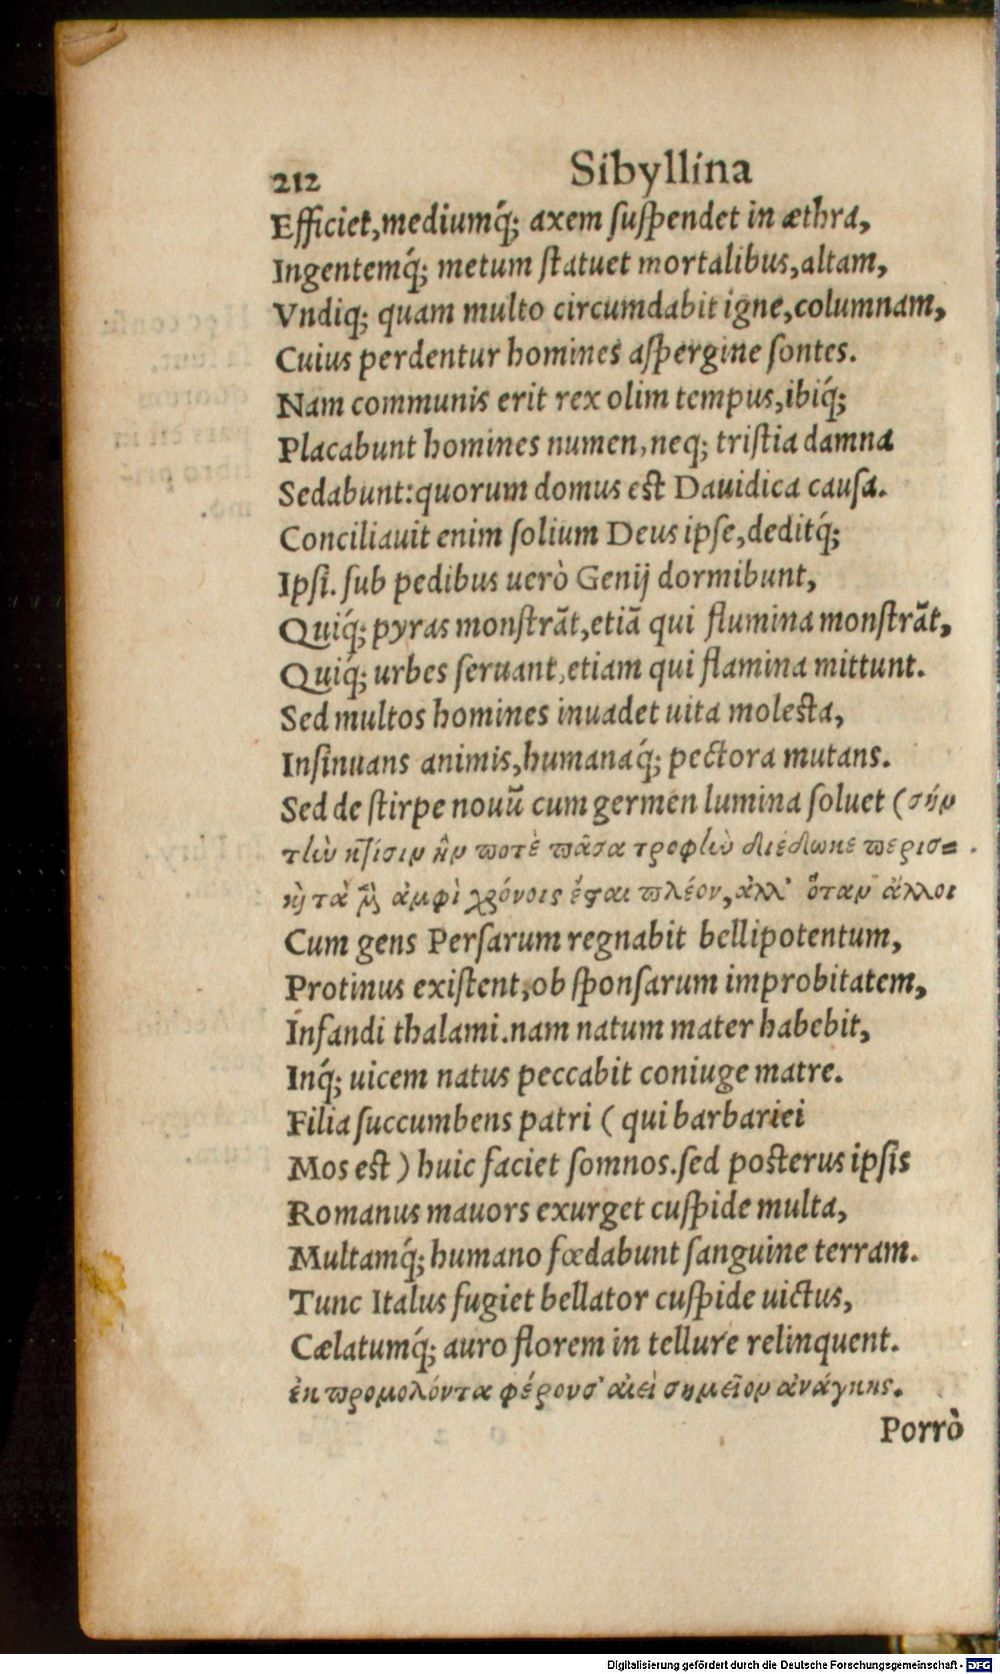 212 Sibyllina
Efficiet,mediumq́; axem ſuſpendet in æthra,
Ingentemq́; metum ſtatuet mortalibus,altam,
Vndiq; quam multo circumdabit igne,columnam,
Cuius perdentur homines aſpergine ſontes.
Nam communis erit rex olim tempus,ibiq́;
Placabunt homines numen,neq; triſtia damna
Sedabunt:quorum domus eſt Dauidica cauſa.
Conciliauit enim ſolium Deus ipſe,deditq́;
Ipſi. ſub pedibus uerò Genij dormibunt,
Quiq́; pyras monſtrãt,etiã qui flumina monſtrãt,
Quiq́; urbes ſeruant,etiam qui flamina mittunt.
Sed multos homines inuadet uita moleſta,
Inſinuans animis,humanaq́; pectora mutans.
Sed de ſtirpe nouũ cum germen lumina ſoluet (σήν
τὴν κτίσιν ἣν ποτὲ πᾶσα τροφὴν διέδωκε περισ=
καὶ τὰ μὲν ἀμφὶ χρόνοις ἔσαι πλέον,ἀλλ᾽ ὅταν ἄλλοι
Cum gens Perſarum regnabit bellipotentum,
Protinus exiſtent,ob ſponſarum improbitatem,
Infandi thalami.nam natum mater habebit,
Inq́; uicem natus peccabit coniuge matre.
Filia ſuccumbens patri ( qui barbariei
Mos eſt ) huic faciet ſomnos.ſed poſterus ipſis
Romanus mauors exurget cuſpide multa,
Multamq́; humano fœdabunt ſanguine terram.
Tunc Italus fugiet bellator cuſpide uictus,
Cælatumq́; auro florem in tellure relinquent.
ἐκ προμολόντα φέρουσ᾽ αἰεὶ σημεῖον ἀνάγκης.
Porrò
Digitalisierung gefördert durch die Deutsche Forschungsgemeinschaft - DFG